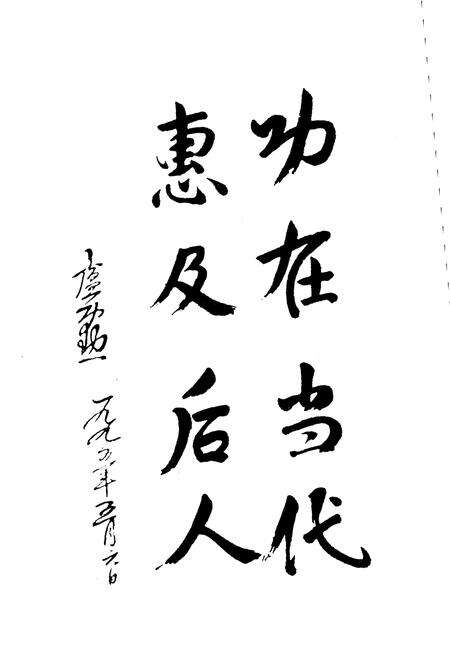 功在当代
惠及后人
卢功勋
一九九五年五月六日